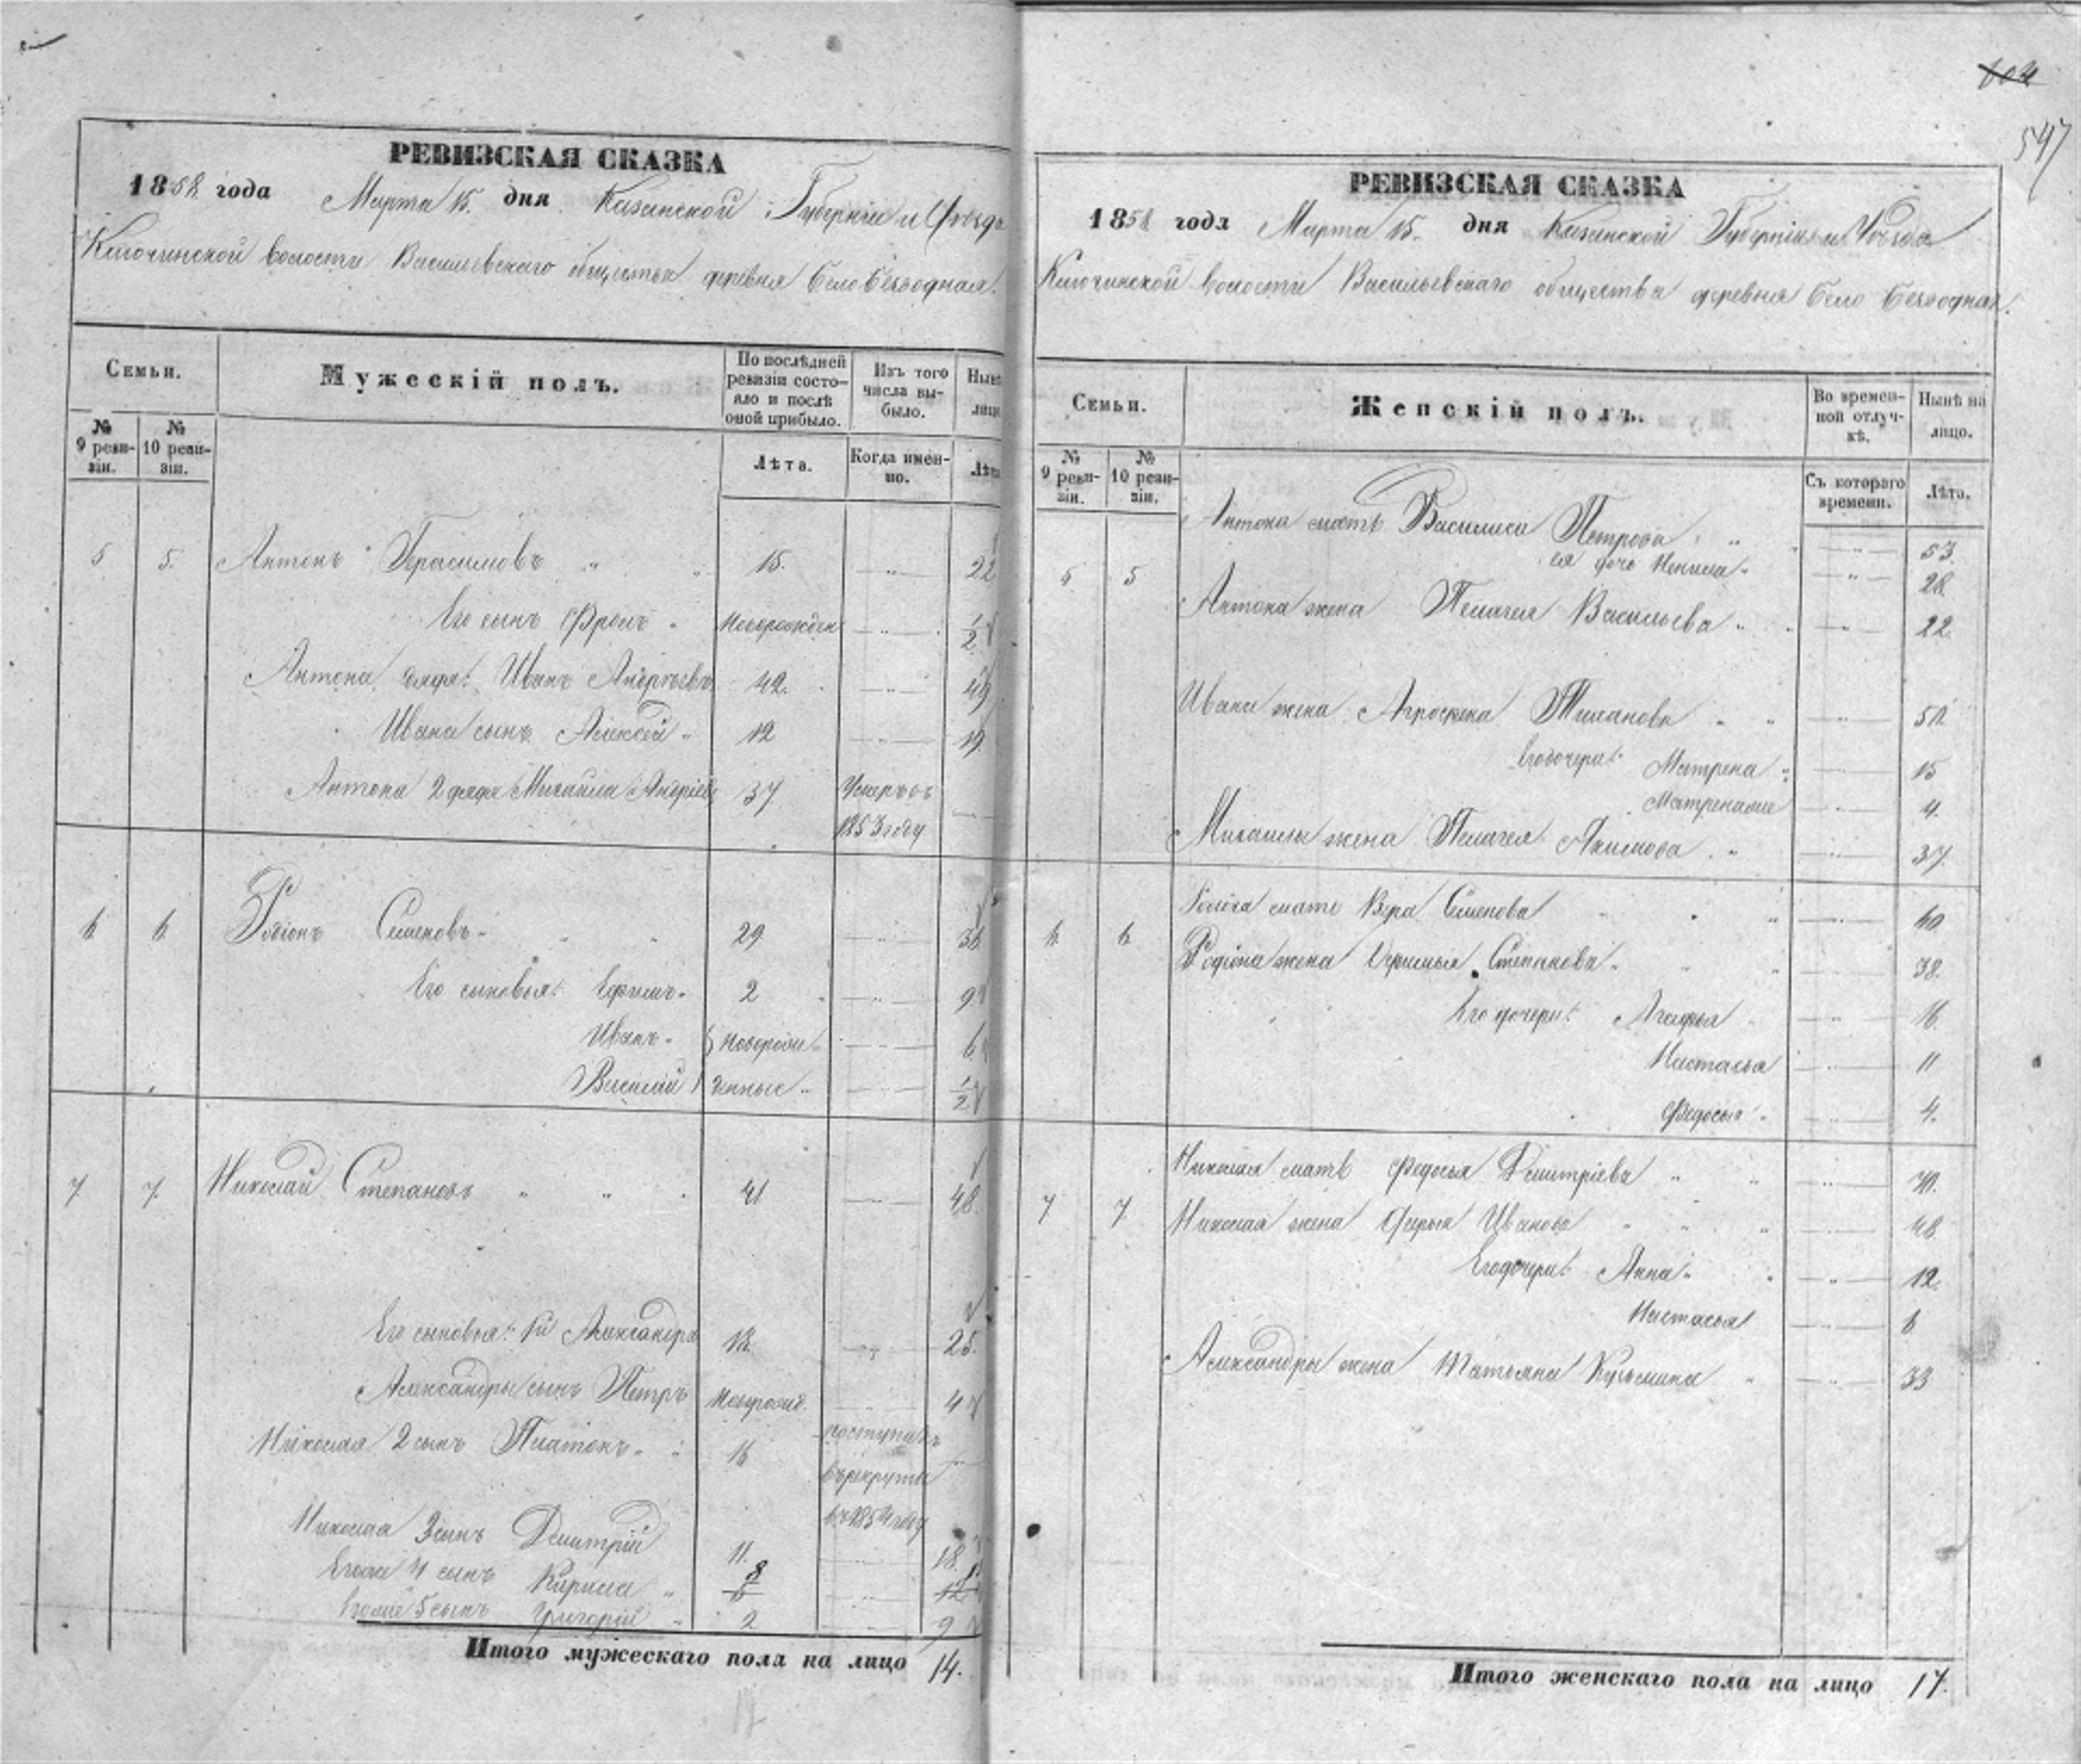 РЕВИЗСКАЯ СКАЗКА
1858 года Марта 15. дня Казанской Губерніи и Уѣзда
Ключинской волости Васильевскаго общества деревня Село Безводная.
Семьи.
Мужескій полъ.
По послѣдней ревизіи состояло и послѣ оной прибыло.
Изъ того числа выбыло.
Нынѣ лицо
№ 9 ревизіи.
№ 10 ревизіи.
Лѣта.
Когда именно.
Лѣта
5 5. Антонъ Герасимовъ " " 15. — " — 22
Его сынъ Фролъ " Новорожден — " — 1/2
Антона дядя: Иванъ Андреевъ 42. — " — 49
Ивана сынъ Алексѣй " 12 — " — 19
Антона 2 дядя Михаила Андреевъ 37 Умеръ въ 1853 году —
6. 6. Родіонъ Семеновъ " " " 29 — " — 36
Его сыновья: Ефимъ " 2 — " — 9
Иванъ " } новорож — " — 6
Василій } денные " — " — 1/2
7 7. Николай Степановъ " " " 41 — " — 48.
Его сыновья: 1й Александра 18. — " — 25.
Александры сынъ Петръ Новорожд. — 4
Николая 2 сынъ Платонъ " " 16 поступилъ
въ рекруты
въ 1854 году
Николая 3 сынъ Дмитрій 11. — 18.
Егоже 4 сынъ Кирила " 8 6 —
Егоже 5 сынъ Григорій " 2 — 9
Итого мужескаго пола на лицо 14.
604
547
РЕВИЗСКАЯ СКАЗКА
1858 года Марта 15. дня Казанской Губерніи и Уѣзда
Ключинской волости Васильевскаго общества деревня Село Безводная.
Семьи.
Женскій полъ.
Во временной отлучкѣ.
Нынѣ на лицо.
№ 9 ревизіи.
№ 10 ревизіи.
Съ котораго времени.
Лѣта.
Антона мать Василиса Петрова " " — " — 53.
ея дочь Ненила " — " — 28.
5 5
Антона жена Пелагея Васильева " " — " — 22.
Ивана жена Агрофена " " — " —
Его дочери: Матрена " — " — 15
Матрена же — " — 4.
Михаилы жена Пелагея Акимова " — " — 37.
Родіона мать Вера Семенова " — " — 60
6. 6. Родіона жена Степанова " " " — " — 38.
Его дочери: Агафья " — " — 16
Настасья — " — 11
Федосья " — " — 4.
Николая мать Федосья Дмитріева " " — " — 70.
7 7 Николая жена Дарья Иванова " " " — " — 48
Его дочери: Анна " " — " — 12.
Настасья — " — 6
Александры жена Татьяна Кузьмина " — " — 33
Итого женскаго пола на лицо 17.